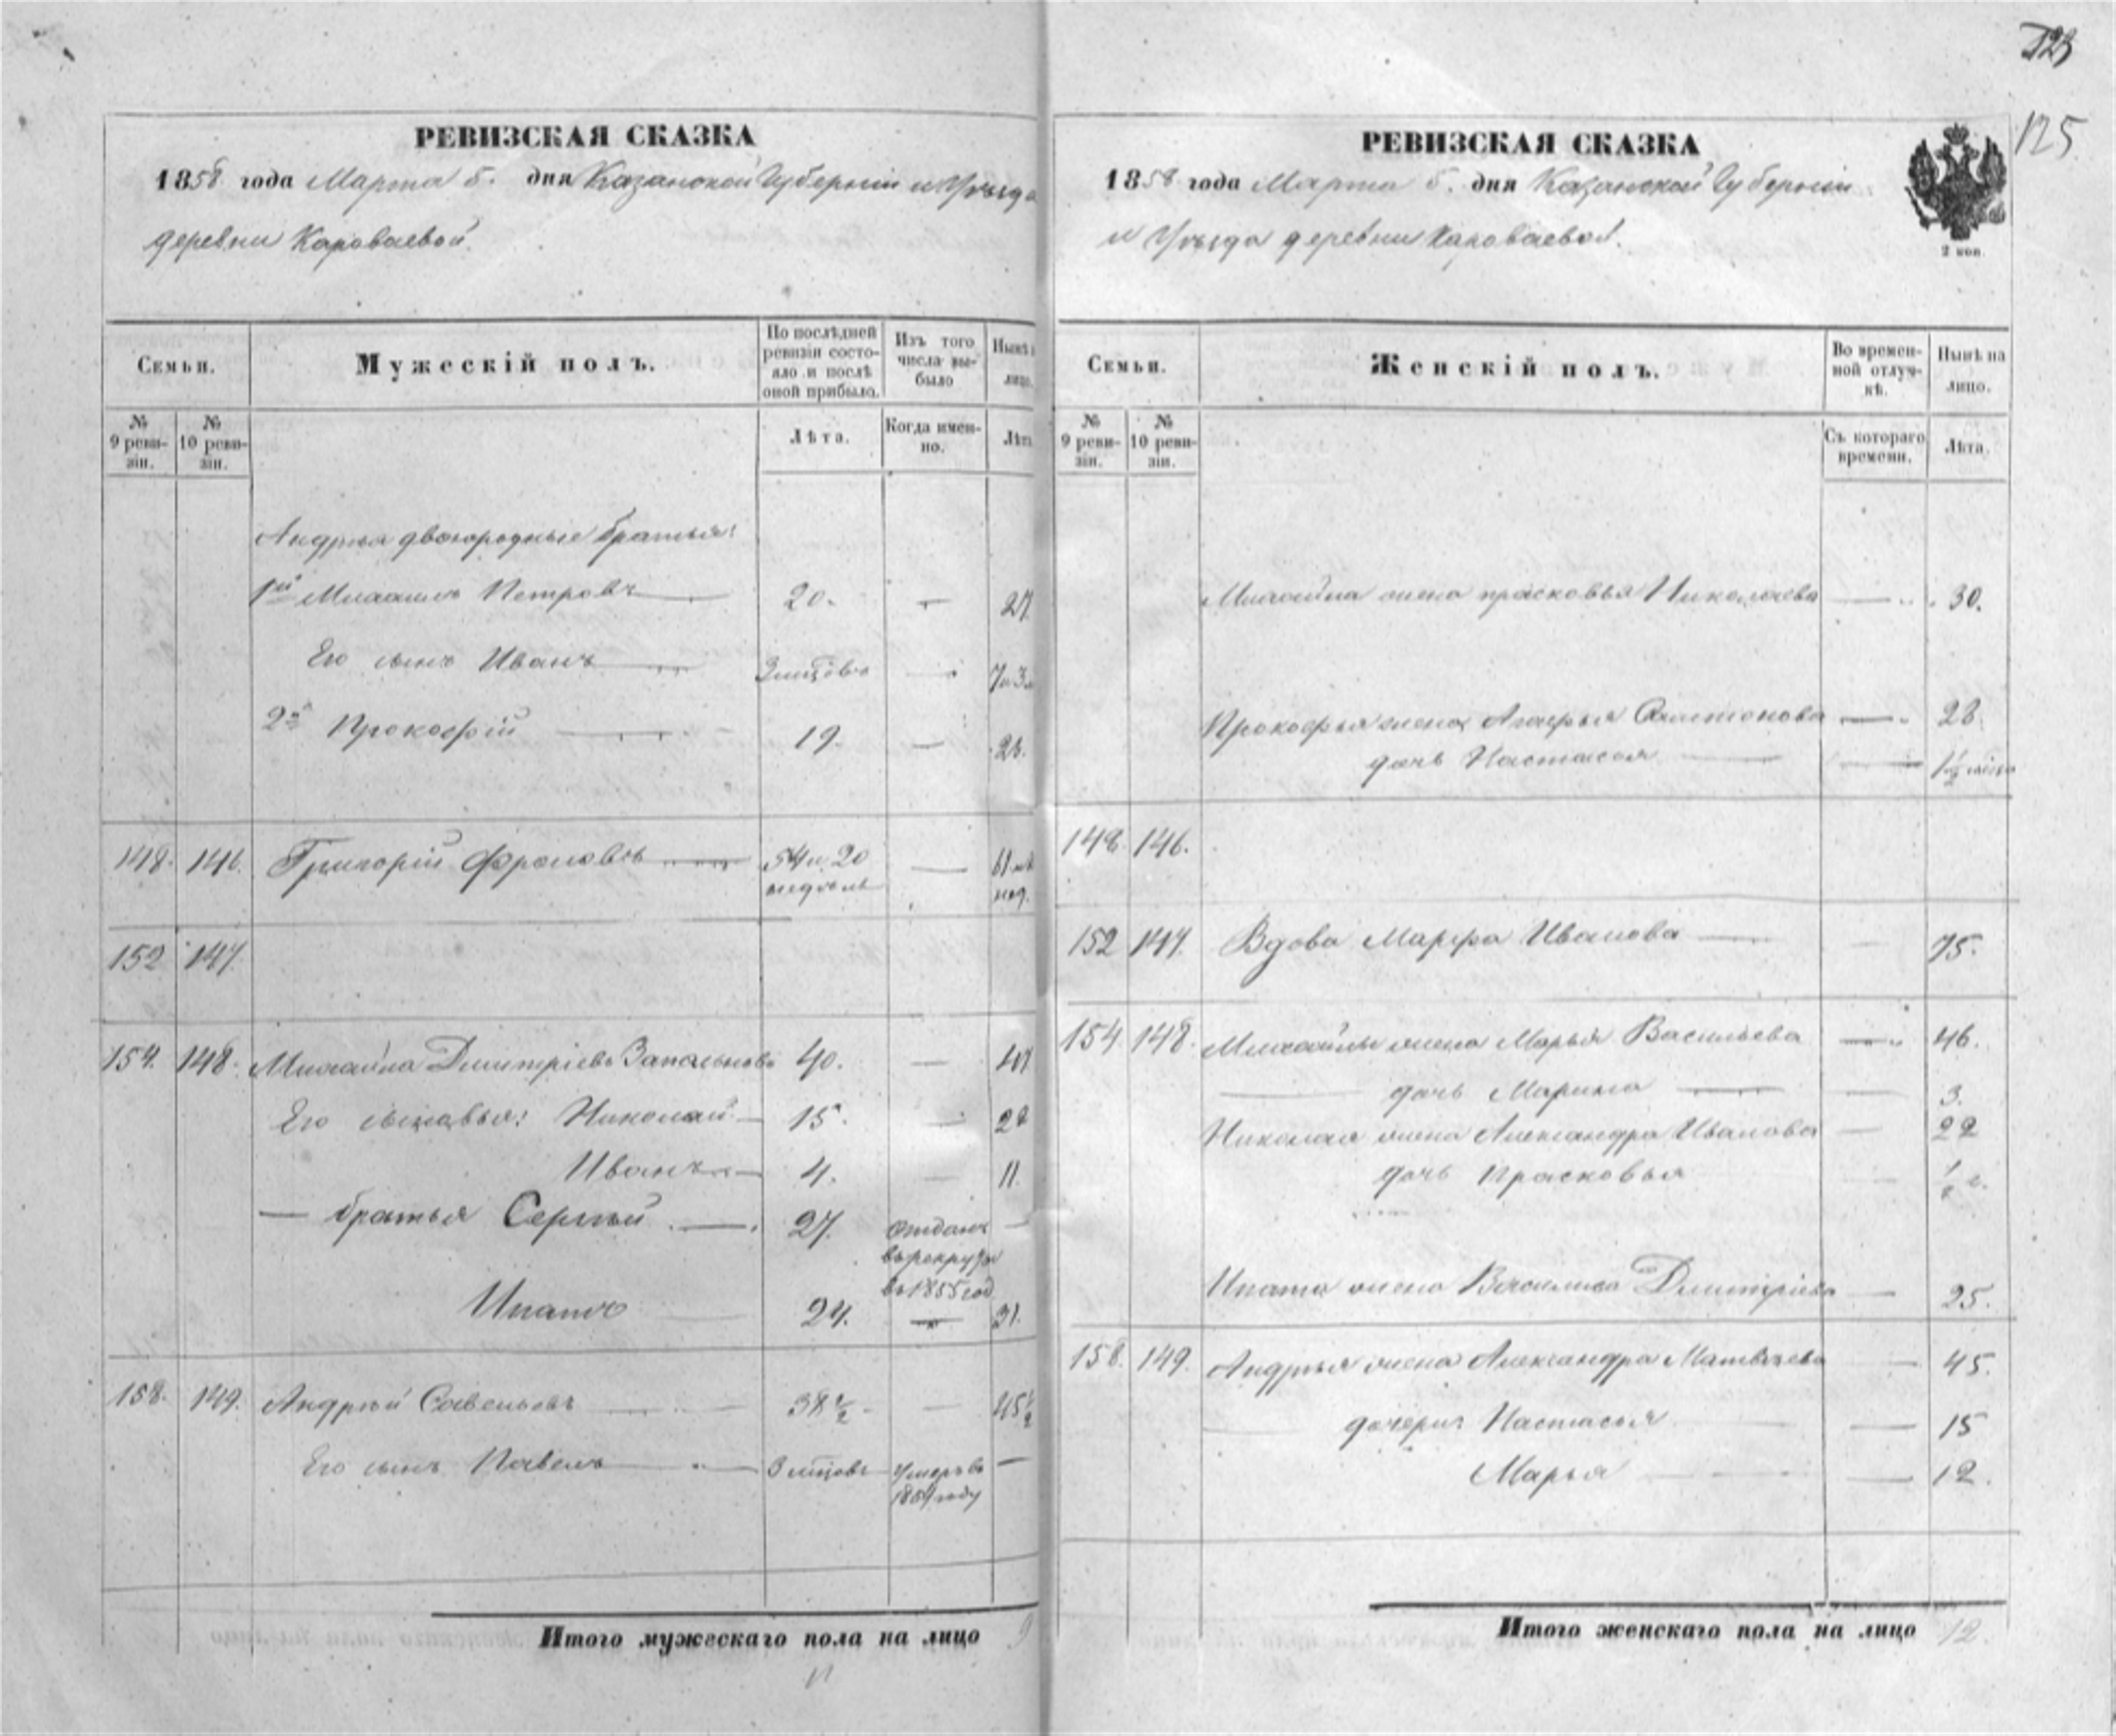 123
125
РЕВИЗСКАЯ СКАЗКА
1858 года Марта 5. дня Казанской Губерніи и Уѣзда
деревни Караваевой.
Семьи.
Мужескій полъ.
По послѣдней ревизіи состояло и послѣ оной прибыло.
Изъ того числа выбыло
Нынѣ на лицо.
№ 9 ревизіи.
№ 10 ревизіи.
Лѣта.
Когда именно.
Лѣта
Андрея двоюродные братья:
1й Михаилъ Петровъ 20. — 27
Его сынъ Иванъ — 7
2й Прокофій 19. — 26.
148. 146. Григорій Фроловъ 54 и 20 недѣль — 61
нед.
152 147.
154. 148. Михайла Дмитріевъ 40. — 47
Его сыновья: Николай 15. — 22
Иванъ 4. — 11.
— братья Сергѣй 27. отданъ —
въ рекруты
въ 1855 год
Ипатъ 24. — 31.
158. 149. Андрей Савельевъ 38 1/2 — 45 1/2
Его сынъ Павелъ умеръ въ —
году
Итого мужескаго пола на лицо 9
РЕВИЗСКАЯ СКАЗКА
1858 года Марта 5. дня Казанской Губерніи
и Уѣзда деревни Караваевой.
2 коп.
Семьи.
Женскій полъ.
Во временной отлучкѣ.
Нынѣ на лицо.
№ 9 ревизіи.
№ 10 ревизіи.
Съ котораго времени.
Лѣта.
Михайла жена Прасковья Николаева — 30.
Прокофья жена — 28.
дочь Настасья — 1 1/2
148. 146.
152 147. Вдова Марфа Иванова — 75.
154. 148. Михайлы жена Марья Васильева — 46.
дочь Марина — 3.
Николая жена Александра Иванова — 22
дочь Прасковья 1/2 г.
Ипата жена Василиса Дмитріева — 25.
158. 149. Андрея жена Александра Матвѣева — 45.
дочери: Настасья — 15
Марья — 12.
Итого женскаго пола на лицо 12.